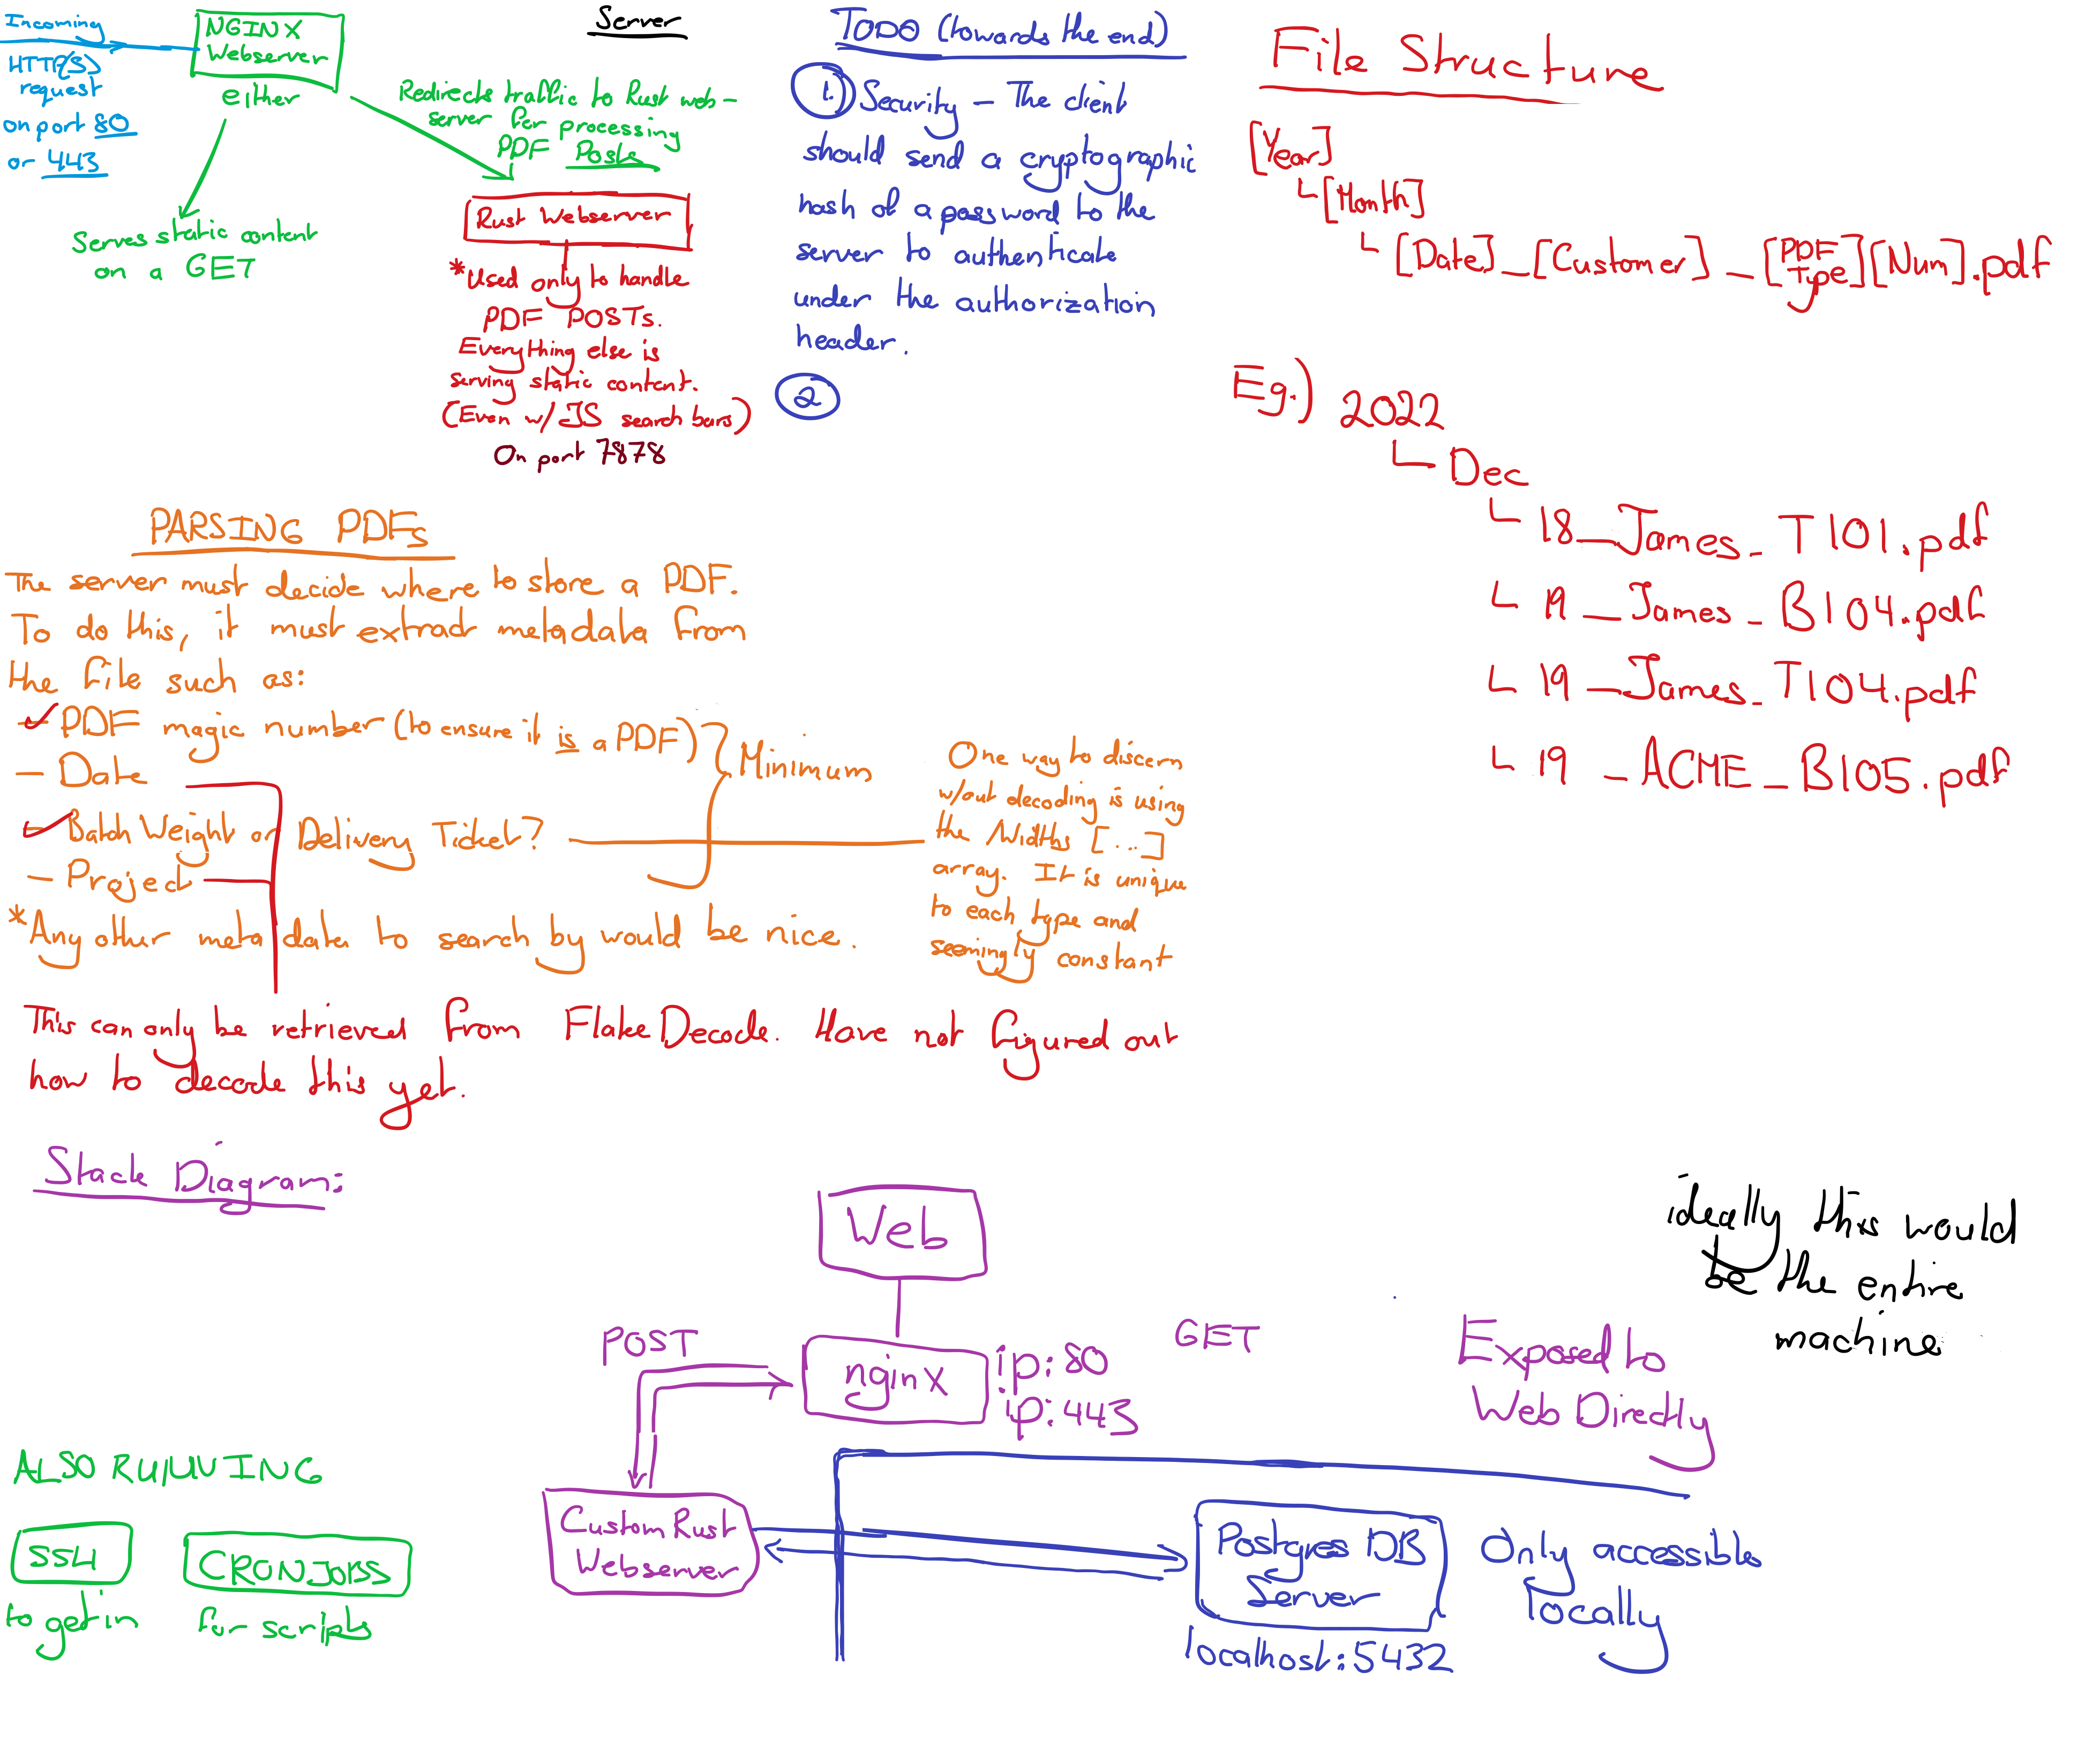 Incoming
HTTP(S)
request
on port 80
or 443
NGINX
Webserver
either
Serves static content
on a GET
Server
Redirects traffic to Rust web-
server for processing
PDF Posts
Rust Webserver
*Used only to handle
PDF POSTs.
Everything else is
serving static content.
(Even w/ JS search bars)
On port 7878
TODO (towards the end)
1. Security - The client
should send a cryptographic
hash of a password to the
server to authenticate
under the authorization
header.
2
File Structure
[Year]
[Month]
[Date]_[Customer]_[PDF Type][Num].pdf
Eg.) 2022
Dec
18_James_T101.pdf
19_James_B104.pdf
19_James_T104.pdf
19_ACME_B105.pdf
PARSING PDFs
The server must decide where to store a PDF.
To do this, it must extract metadata from
the file such as:
- PDF magic number (to ensure it is a PDF)
- Date
- Batch Weight or Delivery Ticket?
- Project
Minimum
*Any other meta data to search by would be nice.
One way to discern
w/out decoding is using
the Widths [...]
array. It is unique
to each type and
seemingly constant
This can only be retrieved from FlateDecode. Have not figured out
how to decode this yet.
Stack Diagram:
Web
POST
nginx
ip:80
ip:443
GET
Exposed to
Web Directly
ideally this would
be the entire
machine
ALSO RUNNING
SSH
to get in
CRONJOBS
for scripts
Custom Rust
Webserver
Postgres DB
Server
localhost:5432
Only accessible
locally